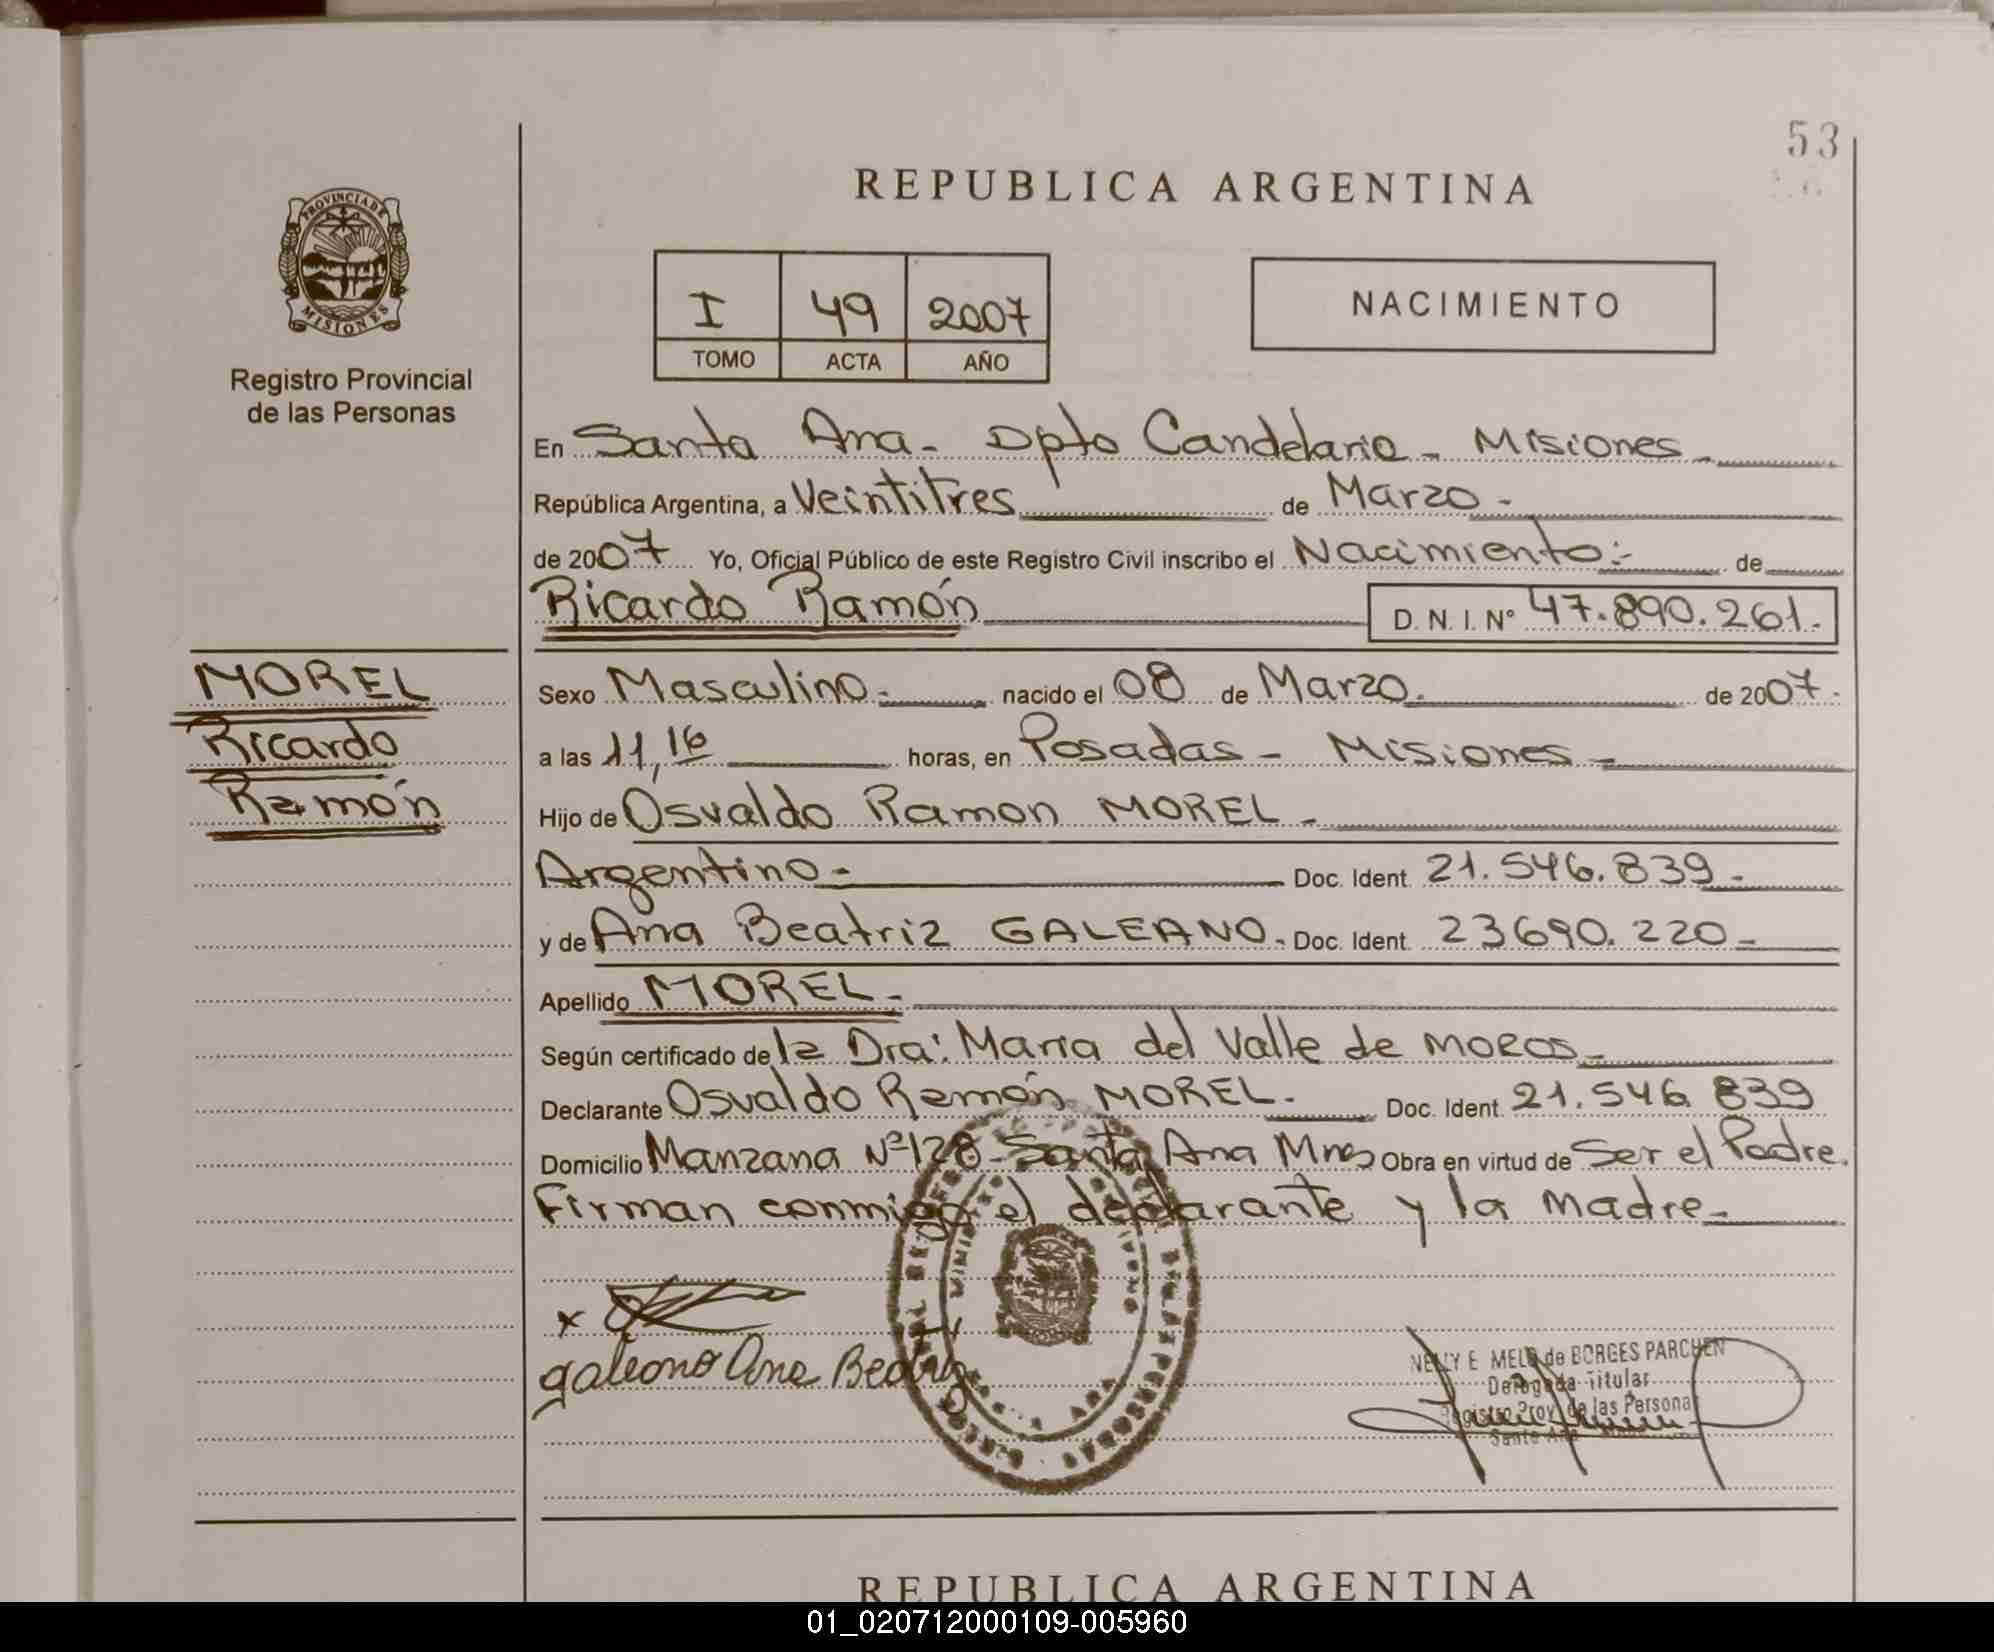 53
REPUBLICA ARGENTINA
PROVINCIA DE
MISIONES
Registro Provincial
de las Personas
I 49 2007
TOMO ACTA AÑO
NACIMIENTO
En Santa Ana - Dpto Candelaria - Misiones -
República Argentina, a Veintitres de Marzo -
de 2007 Yo, Oficial Público de este Registro Civil inscribo el Nacimiento:- de
Ricardo Ramón D. N. I. Nº 47.890.261.
MOREL
Ricardo
Ramón
Sexo Masculino.- nacido el 08 de Marzo. de 2007.
a las 11,16 horas, en Posadas - Misiones -
Hijo de Osvaldo Ramon MOREL -
Argentino - Doc. Ident. 21.546.839 -
y de Ana Beatriz GALEANO. Doc. Ident. 23690.220 -
Apellido MOREL -
Según certificado de la Dra: Maria del Valle de MOROS -
Declarante Osvaldo Ramón MOREL. Doc. Ident. 21.546 839
Domicilio Manzana Nº 128 - Santa Ana Mnes Obra en virtud de Ser el Padre.
Firman conmigo el declarante y la madre -
x
galeano Ana Beatriz
NELLY E. MELO de BORGES PARCHEN
Delegada Titular
Registro Prov. de las Personas
Santa Ana
REPUBLICA ARGENTINA
01_020712000109-005960